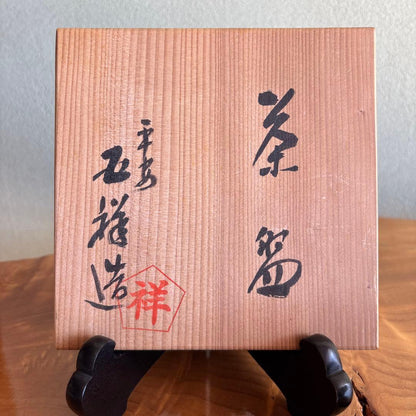 茶盌
平安
玉祥造
祥